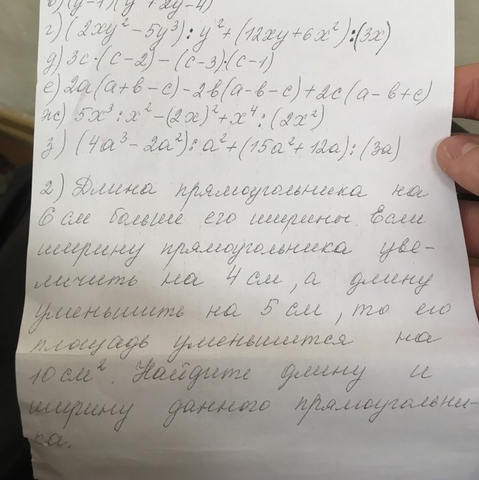 б) (y-1)(y²+2y-4)
г) (2xy²-5y³):y²+(12xy+6x²):(3x)
д) 3c·(c-2)-(c-3)·(c-1)
е) 2a(a+b-c)-2b(a-b-c)+2c(a-b+c)
ж) 5x³:x²-(2x)²+x⁴:(2x²)
з) (4a³-2a²):a²+(15a²+12a):(3a)
2) Длина прямоугольника на
6 см больше его ширины. Если
ширину прямоугольника уве-
личить на 4 см, а длину
уменьшить на 5 см, то его
площадь уменьшится на
10 см². Найдите длину и
ширину данного прямоугольни-
ка.